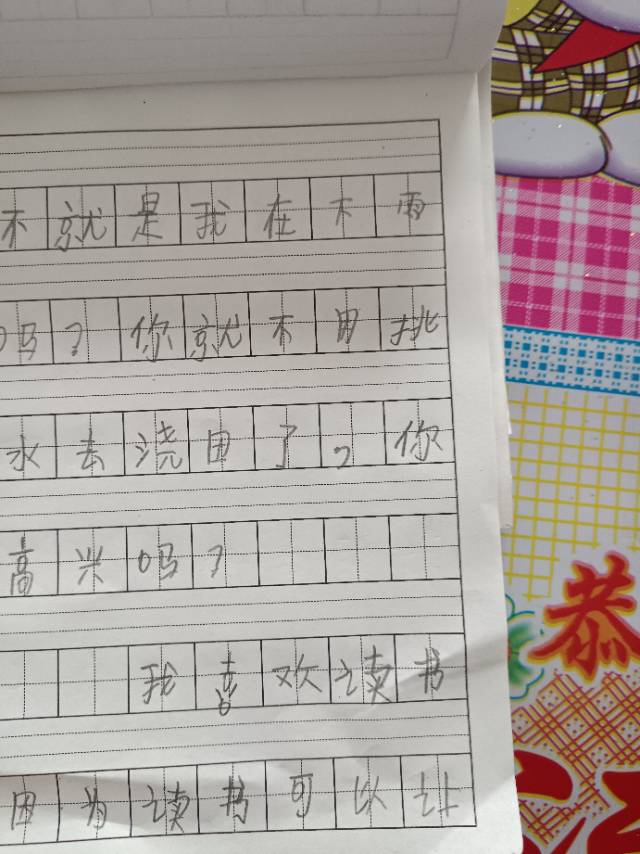 不就是我在下雨
吗？你就不用挑
水去浇田了，你
高兴吗？
我喜欢读书
因为读书可以让
恭